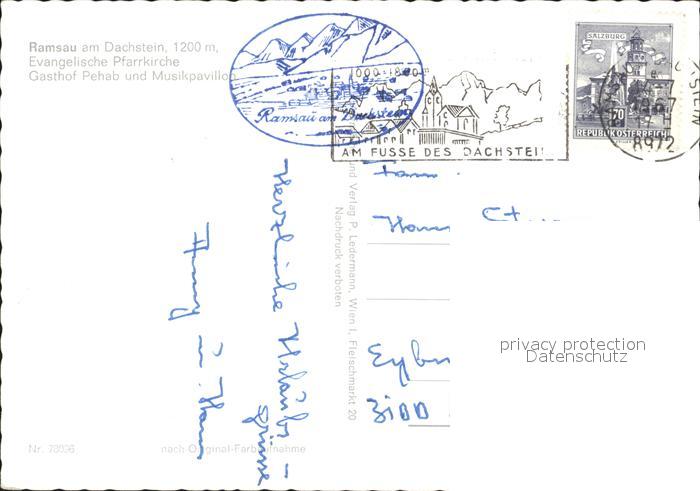 Ramsau am Dachstein, 1200 m,
Evangelische Pfarrkirche
Gasthof Pehab und Musikpavillon
Ramsau am Dachstein
AM FUSSE DES DACHSTEI
SALZBURG
70
REPUBLIK ÖSTERREICH
8972
und Verlag P. Ledermann, Wien I, Fleischmarkt 20
Nachdruck verboten
Herzliche Urlaubs-
grüsse
Fam
Hans
Eybn
3100
privacy protection
Datenschutz
Nr. 78096
nach Original-Farbaufnahme